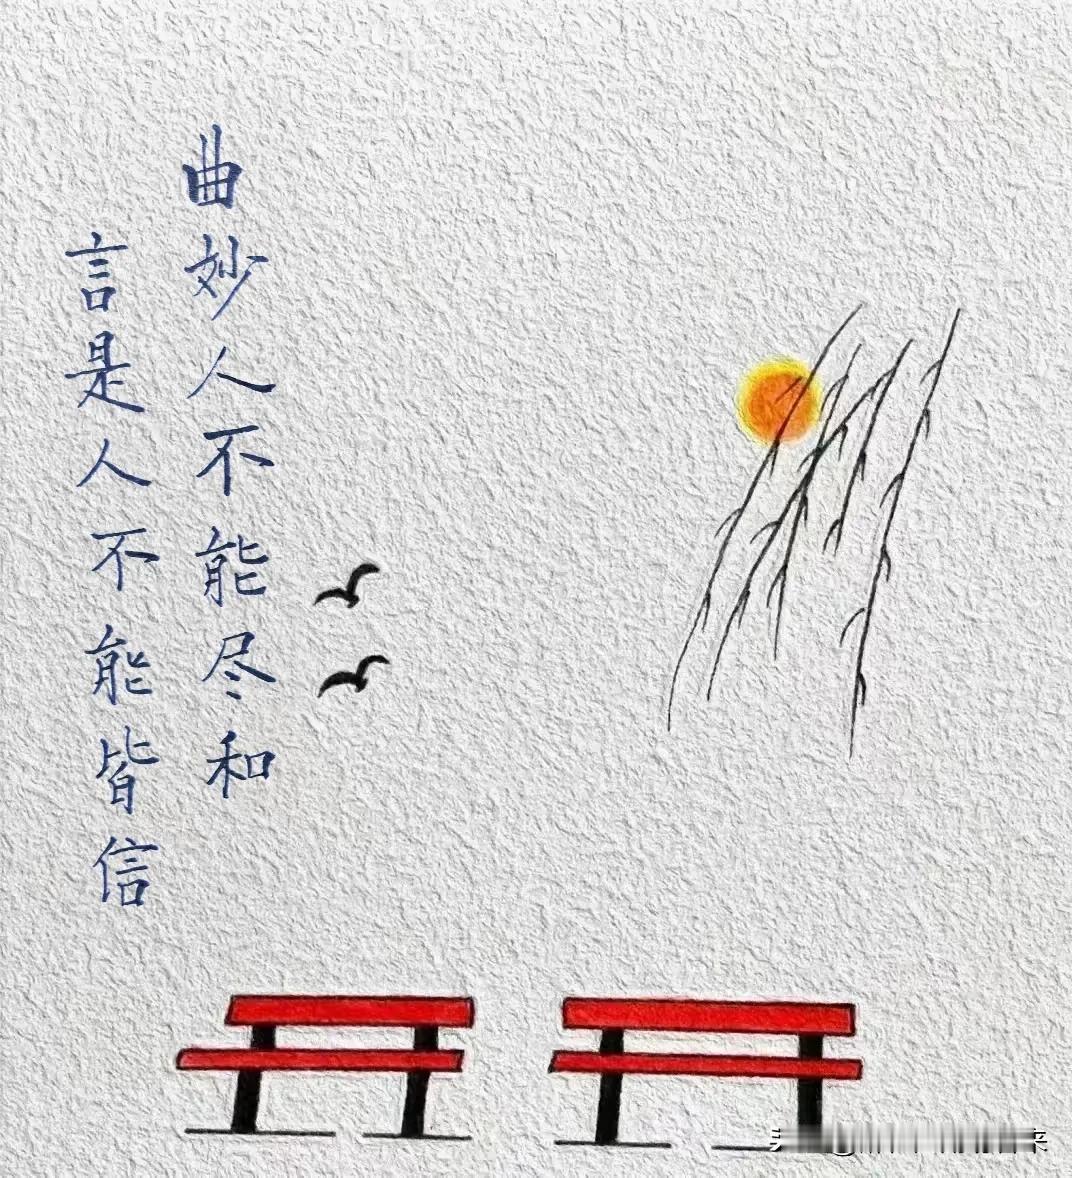 曲妙人不能尽和
言是人不能皆信